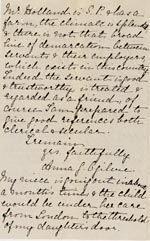 Mr Holland is S.P. & has a
farm, the climate is splendid
& there is not that broad
line of demarcation between
servants & their employers
which exists in this country
Indeed the servant is good
& trustworthy is treated &
regarded as a friend, of
course I am prepared to
give good references both
clerical & secular.
I remain
Yrs faithfully
Anna J. Ogilvie
My niece is going out in about
a month's time & the child
would be under her care
from London to the threshold
of my daughter's door.